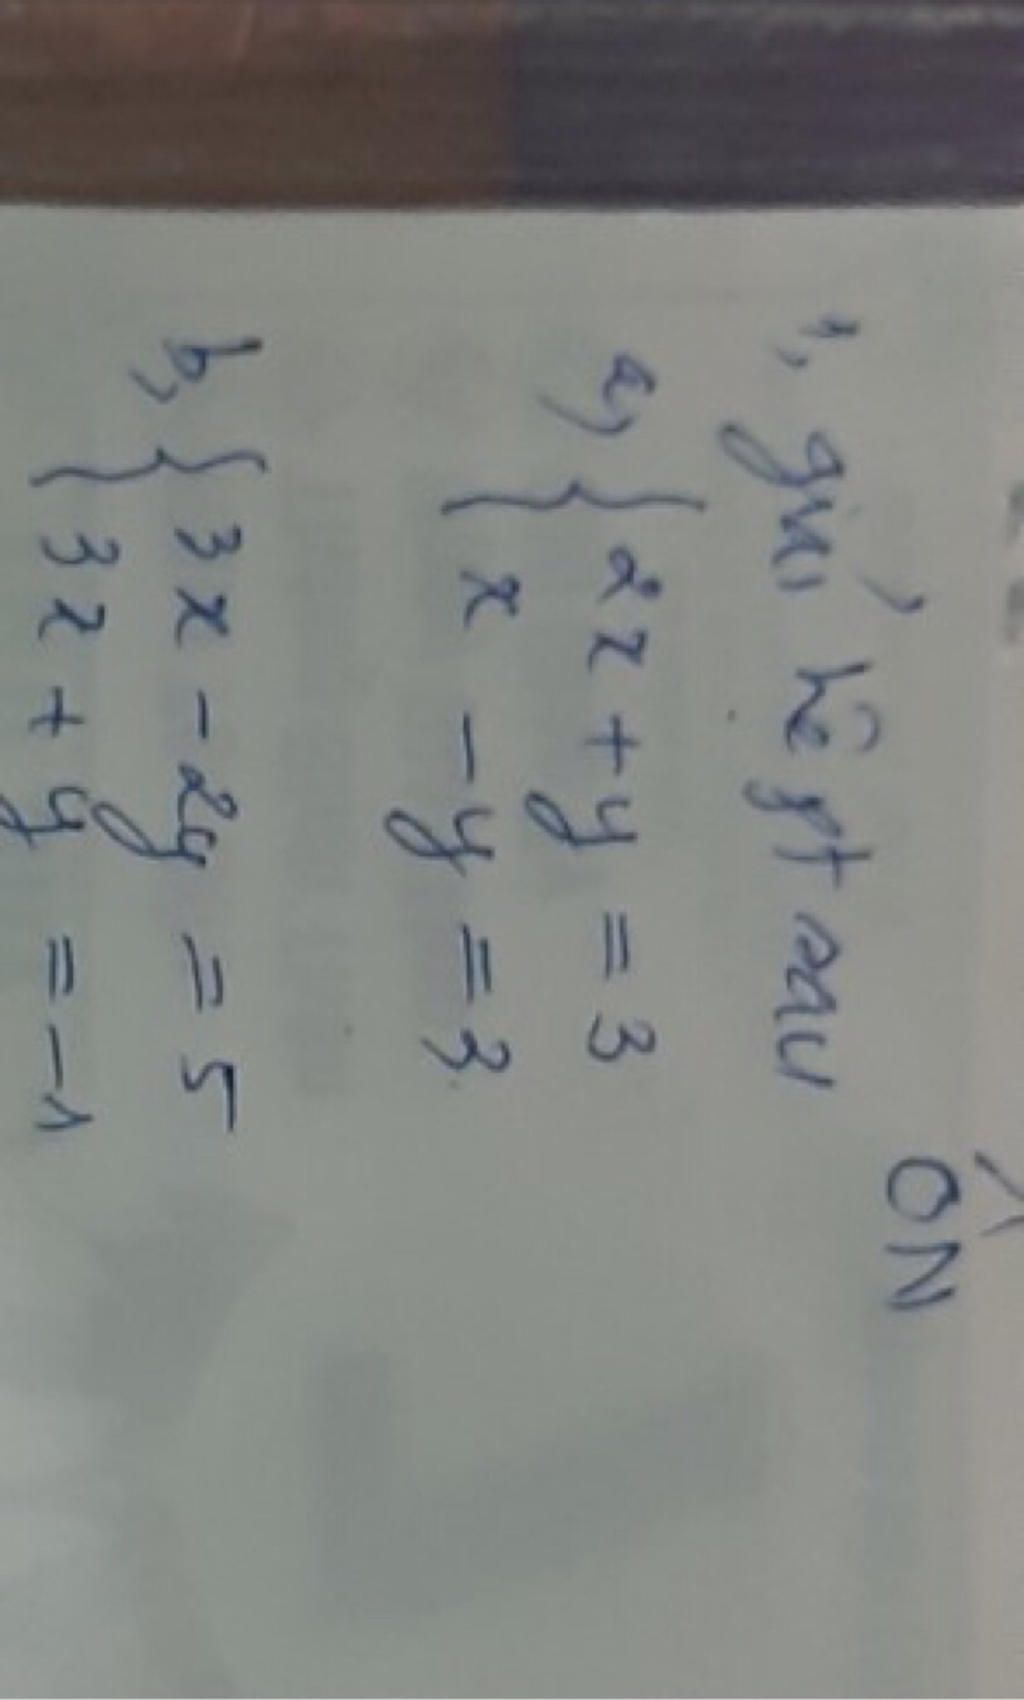 ÔN
1, giải hệ pt sau
a, { 2x + y = 3
x - y = 3
b, { 3x - 2y = 5
3x + y = -1